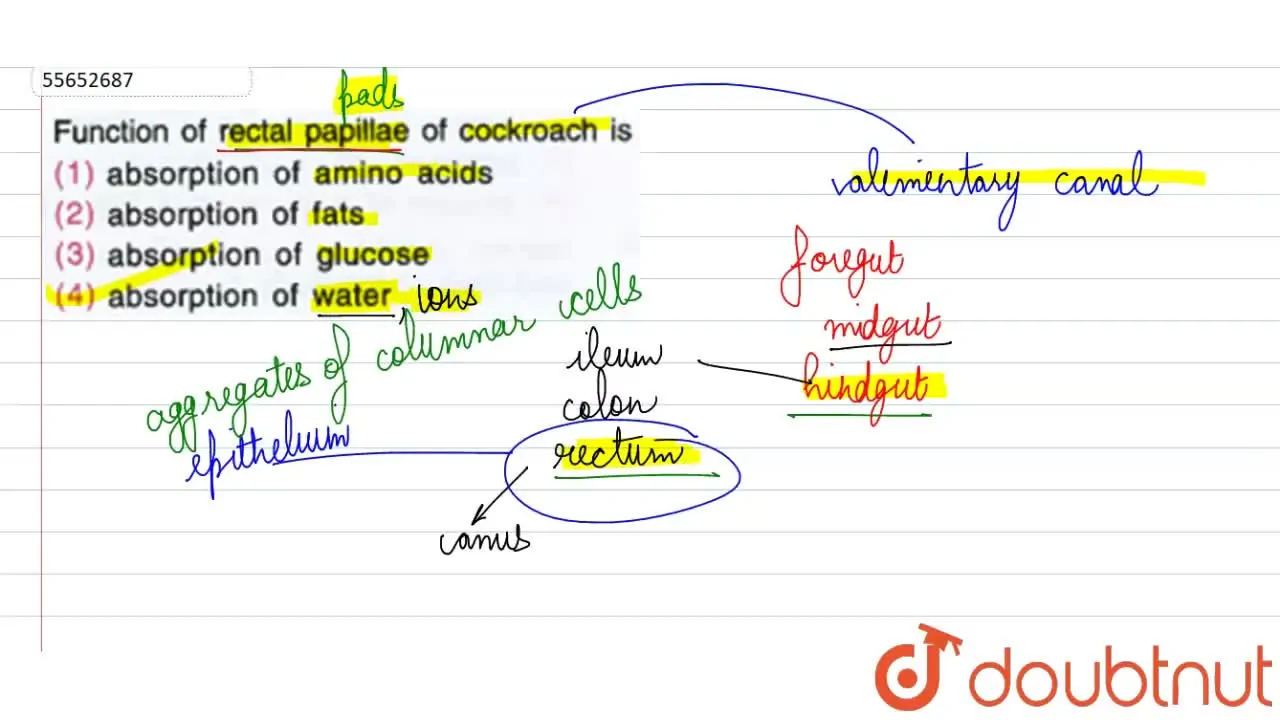 55652687
pads
Function of rectal papillae of cockroach is
(1) absorption of amino acids
(2) absorption of fats
(3) absorption of glucose
(4) absorption of water, ions
alimentary canal
foregut
midgut
hindgut
aggregates of columnar cells
epithelium
ileum
colon
rectum
anus
doubtnut